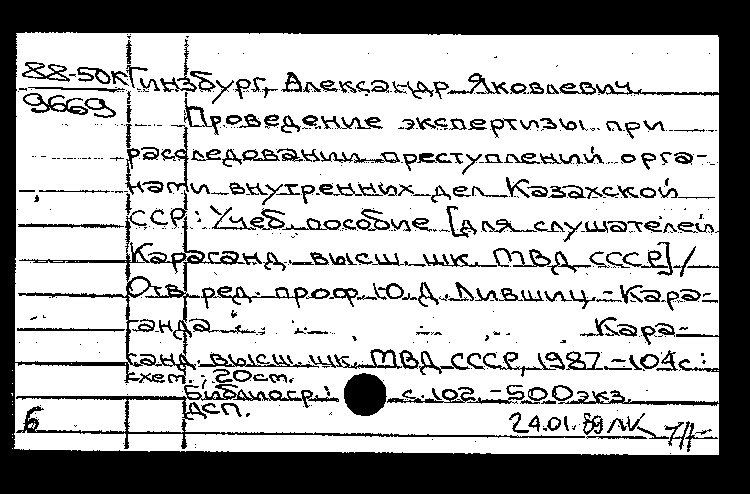 88-50К Гинзбург, Александр Яковлевич.
9669
Проведение экспертизы при
расследовании преступлений орга-
нами внутренних дел Казахской
ССР: Учеб. пособие [для слушателей
Караганд. высш. шк. МВД СССР] /
Отв. ред. проф. Ю.Д. Лившиц. - Кара-
ганда Кара-
ганд. высш. шк. МВД СССР, 1987. - 104с.:
схем.; 20см.
Библиогр.: с. 102. - 500экз.
ДСП.
Б 24.01.89